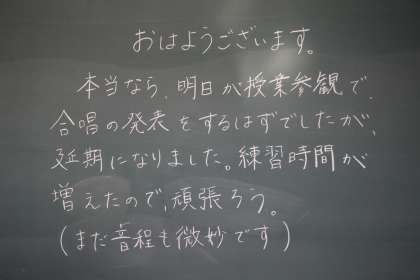 おはようございます。
本当なら、明日が授業参観で、
合唱の発表をするはずでしたが、
延期になりました。練習時間が
増えたので、頑張ろう。
(まだ音程も微妙です)